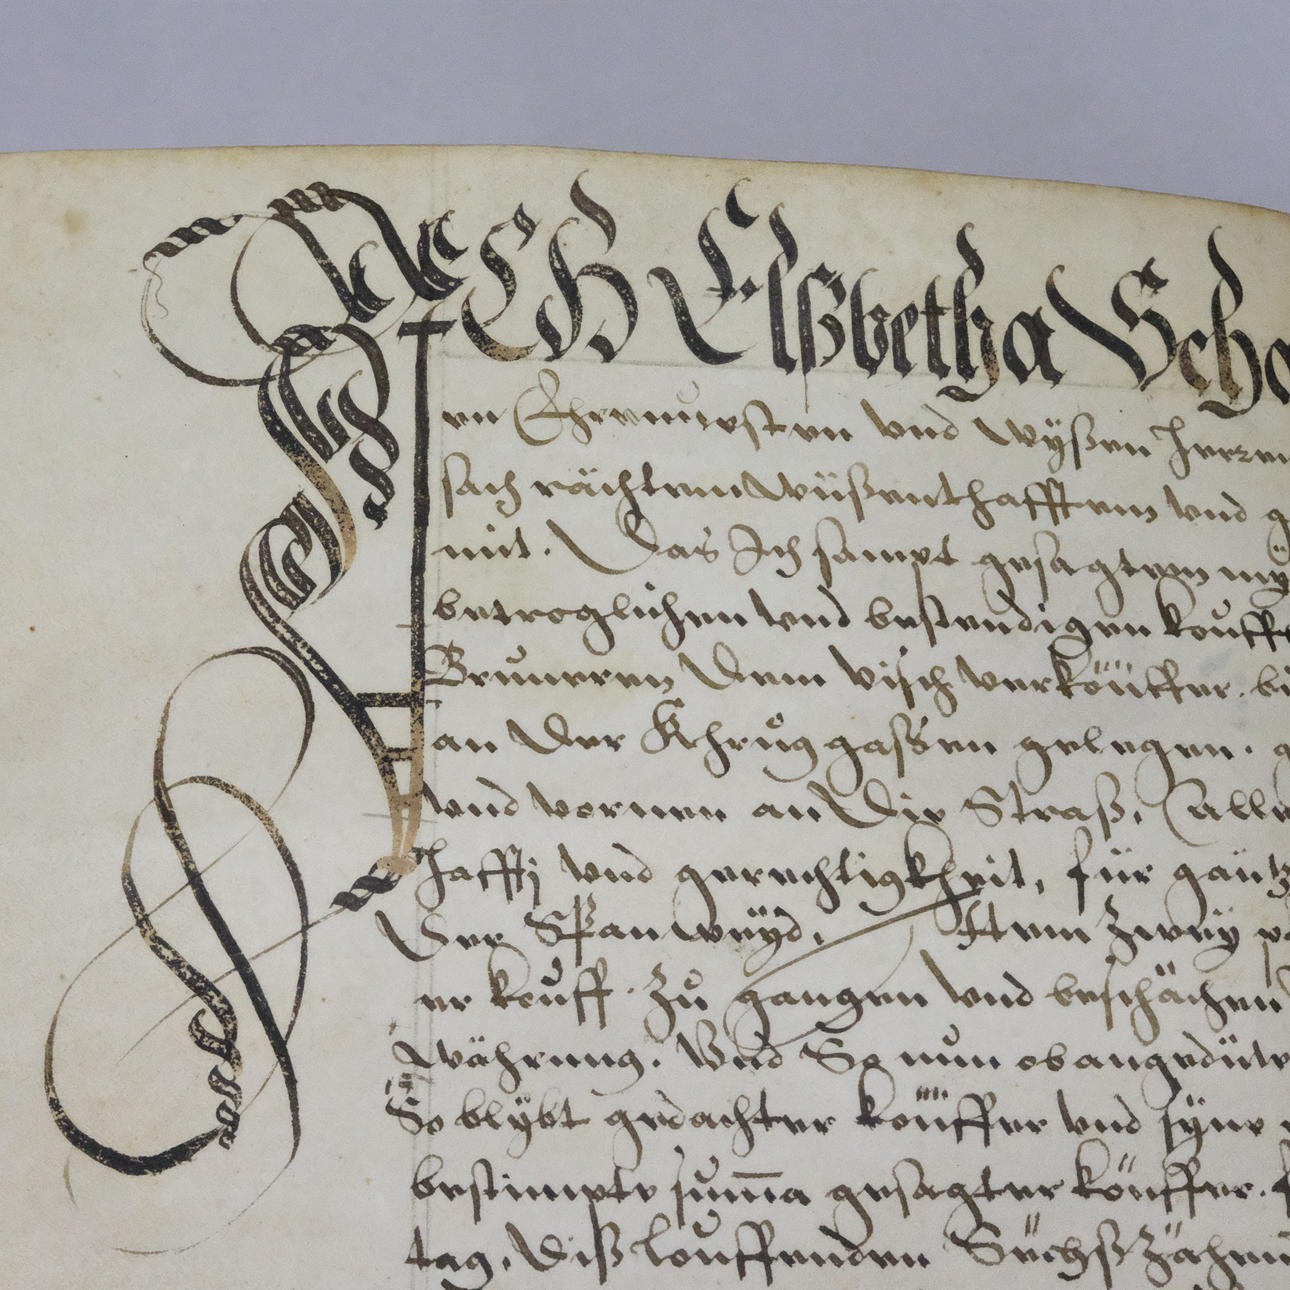 ICH Elsbetha Scha
en Ehrenuesten vnd Wyßen herren
sach rächtem wüßenthafftem vnd g
mit. Das Ich sampt gesagtem my
betroglichen vnd bestendigen kouff
Bruneren Dem visch verköüffer. bi
an der Khrůg gaßen gelegen. g
vnd vornen an Die Straß, Alle
hafftj vnd gerechtigkheit, für gantz
Der Span weyd, Item Zwey p
er kouff. Zů gangen vnd beschächen
Währung. Vnd So nun obangedüte
So blybt gedachter köüffer vnd syne
bestimpte suma gesagter köüffer.
tag, Diß louffenden Sächß Zähen